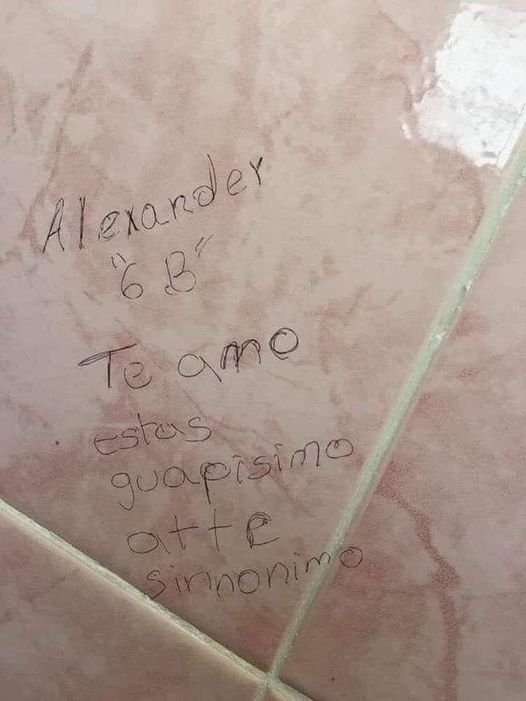 Alexander
"6 B"
Te amo
estas
guapisimo
atte
sinnonimo